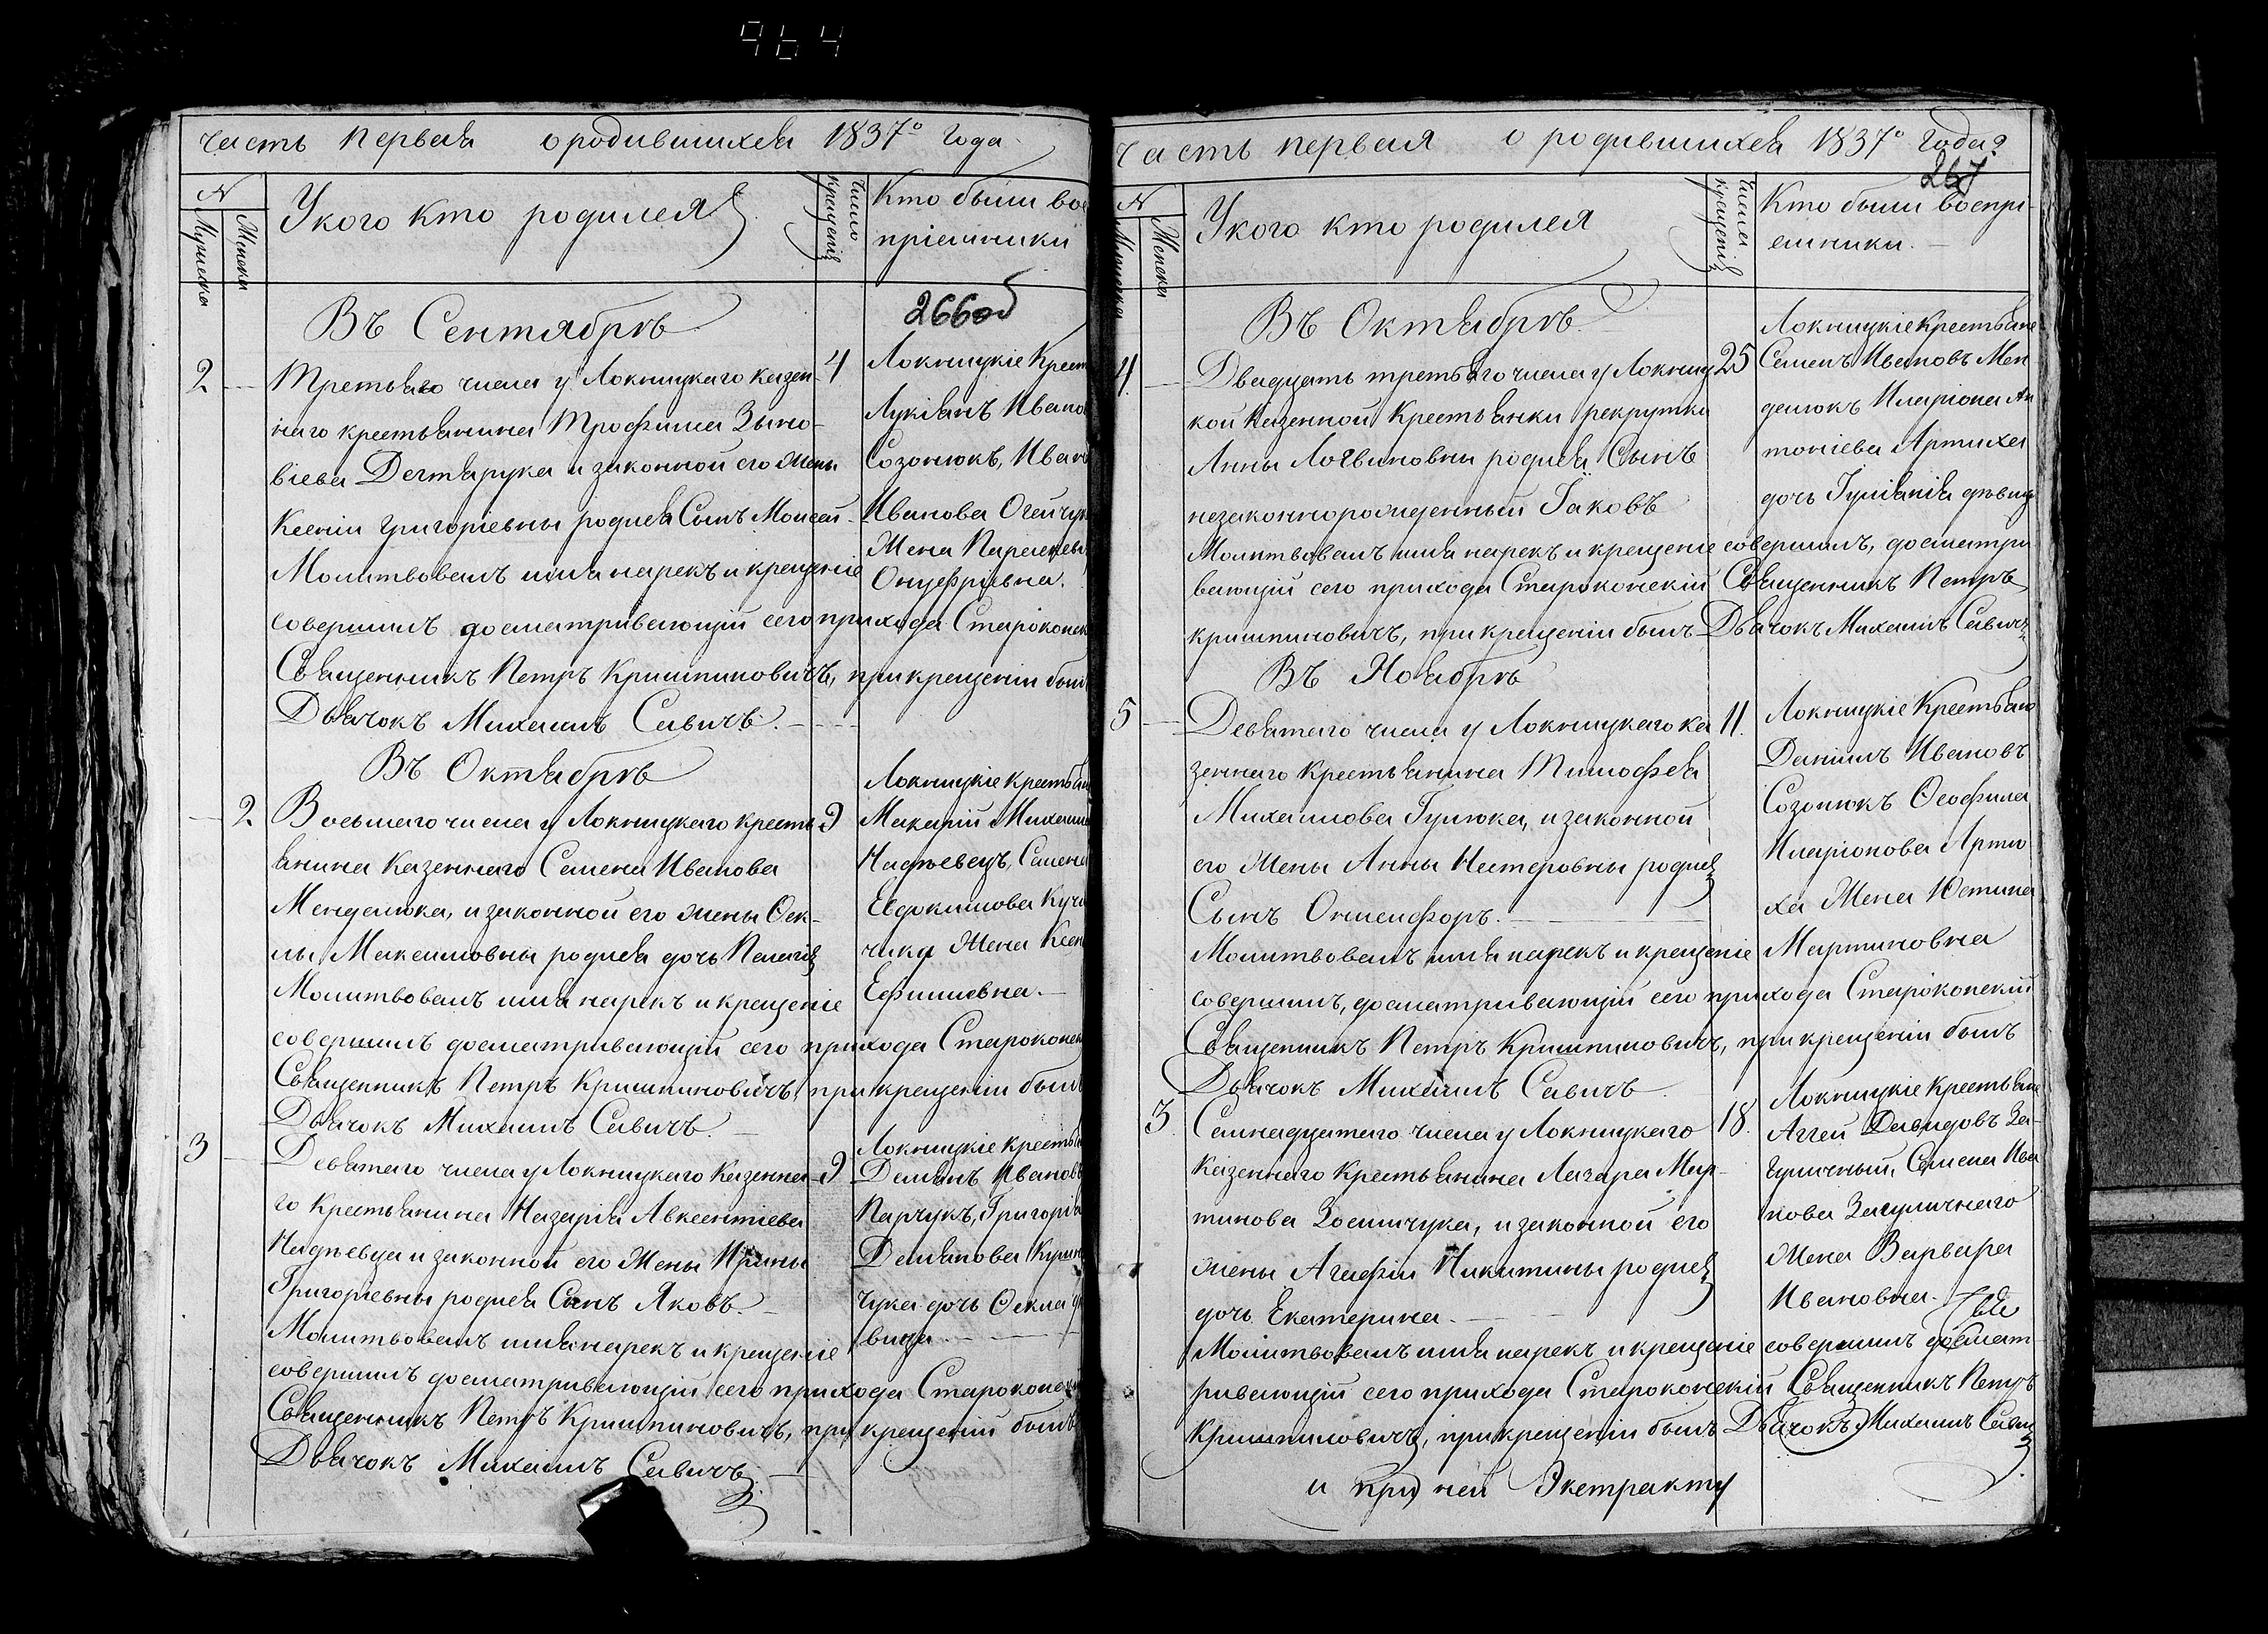 964
Часть первая о родившихся 1837º года
№
Мужеска
Женска
У кого кто родился
Число крещенія
Кто были вос
пріемники
266об
Въ Сентябрѣ
2
Третьяго числа у Локницкаго казен-
наго крестьянина Трофима Зыно-
віева Дегтярука и законной его жены
Ксеніи Григоріевны родися Сынъ Моисей.
Молитвовалъ имя нарекъ и крещеніе
совершилъ досматривающій сего прихода Староконск
Священникъ Петръ Кришпиновичъ, при крещеніи былъ
Дьячокъ Михаилъ Савичъ.
4
Локницкіе Крест
Лукіянъ Ивано
Созонюкъ, Иван
Иванова Огейчук
Жена Параскевы
Онуфріевна.
Въ Октябрѣ
2
Восьмаго числа у Локницкаго кресть-
янина казеннаго Семена Иванова
Менделюка, и законной его жены Ѳек-
лы Максимовны родися дочь Пелагія
Молитвовалъ имя нарекъ и крещеніе
совершилъ досматривающій сего прихода Староконск
Священникъ Петръ Кришпиновичъ, при крещеніи былъ
Дьячокъ Михаилъ Савичъ.
9
Локницкіе крестьян
Макарій Михаил
Надѣевецъ, Семена
Евдокимова Куч
чика Жена Ксен
Ефимовна.
3
Девятаго числа у Локницкаго Казенна-
го Крестьянина Назарія Авксентіева
Надѣевца и законной его Жены Ирины
Григоріевны родися Сынъ Яковъ.
Молитвовалъ имя нарекъ и крещеніе
совершилъ досматривающій сего прихода Староконск
Священникъ Петръ Кришпиновичъ, при крещеній былъ
Дьячокъ Михаилъ Савичъ.
9
Локницкіе крестья
Демянъ Ивановъ
Парчукъ, Григорія
Демянова
чука дочь Ѳекла
вица.
Часть первая о родившихся 1837º года
267
№
Мужеска
Женска
У кого кто родился
Число крещенія
Кто были воспрі-
емники.
Въ Октябрѣ
4
Двадцать третьяго числа у Локниц
кой Казенной Крестьянки рекрутки
Анны Логвиновны родися Сынъ
незаконнорожденный Іаковъ
Молитвовалъ имя нарекъ и крещеніе совершилъ, досматри
вающій сего прихода Староконскій Священникъ Петръ
Кришпиновичъ, при крещеніи былъ Дьячокъ Михаилъ Савичъ
25
Локницкіе Крестьяне
Семенъ Ивановъ Мен
делюкъ Иларіона Ан
тоніева Артиха
дочь Іуліанія дѣвица
Въ Ноябрѣ
5
Девятаго числа у Локницкаго ка
зеннаго Крестьянина Тимофея
Михаилова Гулюка, и законной
его Жены Анны Нестеровны родися
Сынъ Онисифоръ.
Молитвовалъ имя нарекъ и крещеніе
совершилъ, досматривающій сего прихода Староконскій
Священникъ Петръ Кришпиновичъ, при крещеніи былъ
Дьячокъ Михаилъ Савичъ
11.
Локницкіе Крестьяне
Даніилъ Ивановъ
Созонюкъ Ѳеофила
Иларіонова Арти
ха Жена Юстина
Мартиновна
3.
Семнадцатаго числа у Локницкаго
Казеннаго Крестьянина Лазара Мар-
тинова Зосимчука, и законной его
жены Агафіи Никитины родися
дочь Екатерина.
Молитвовалъ имя нарекъ и крещеніе совершилъ досмат
ривающій сего прихода Староконскій Священникъ Петръ
Кришпиновичъ, при крещеніи былъ Дьячокъ Михаилъ Савичъ
18.
Локницкіе Крестьяне
Аггей Давидовъ За-
гуличный, Семена Ива
нова Загуличнаго
Жена Варвара
Ивановна.
и при ней Экстракту